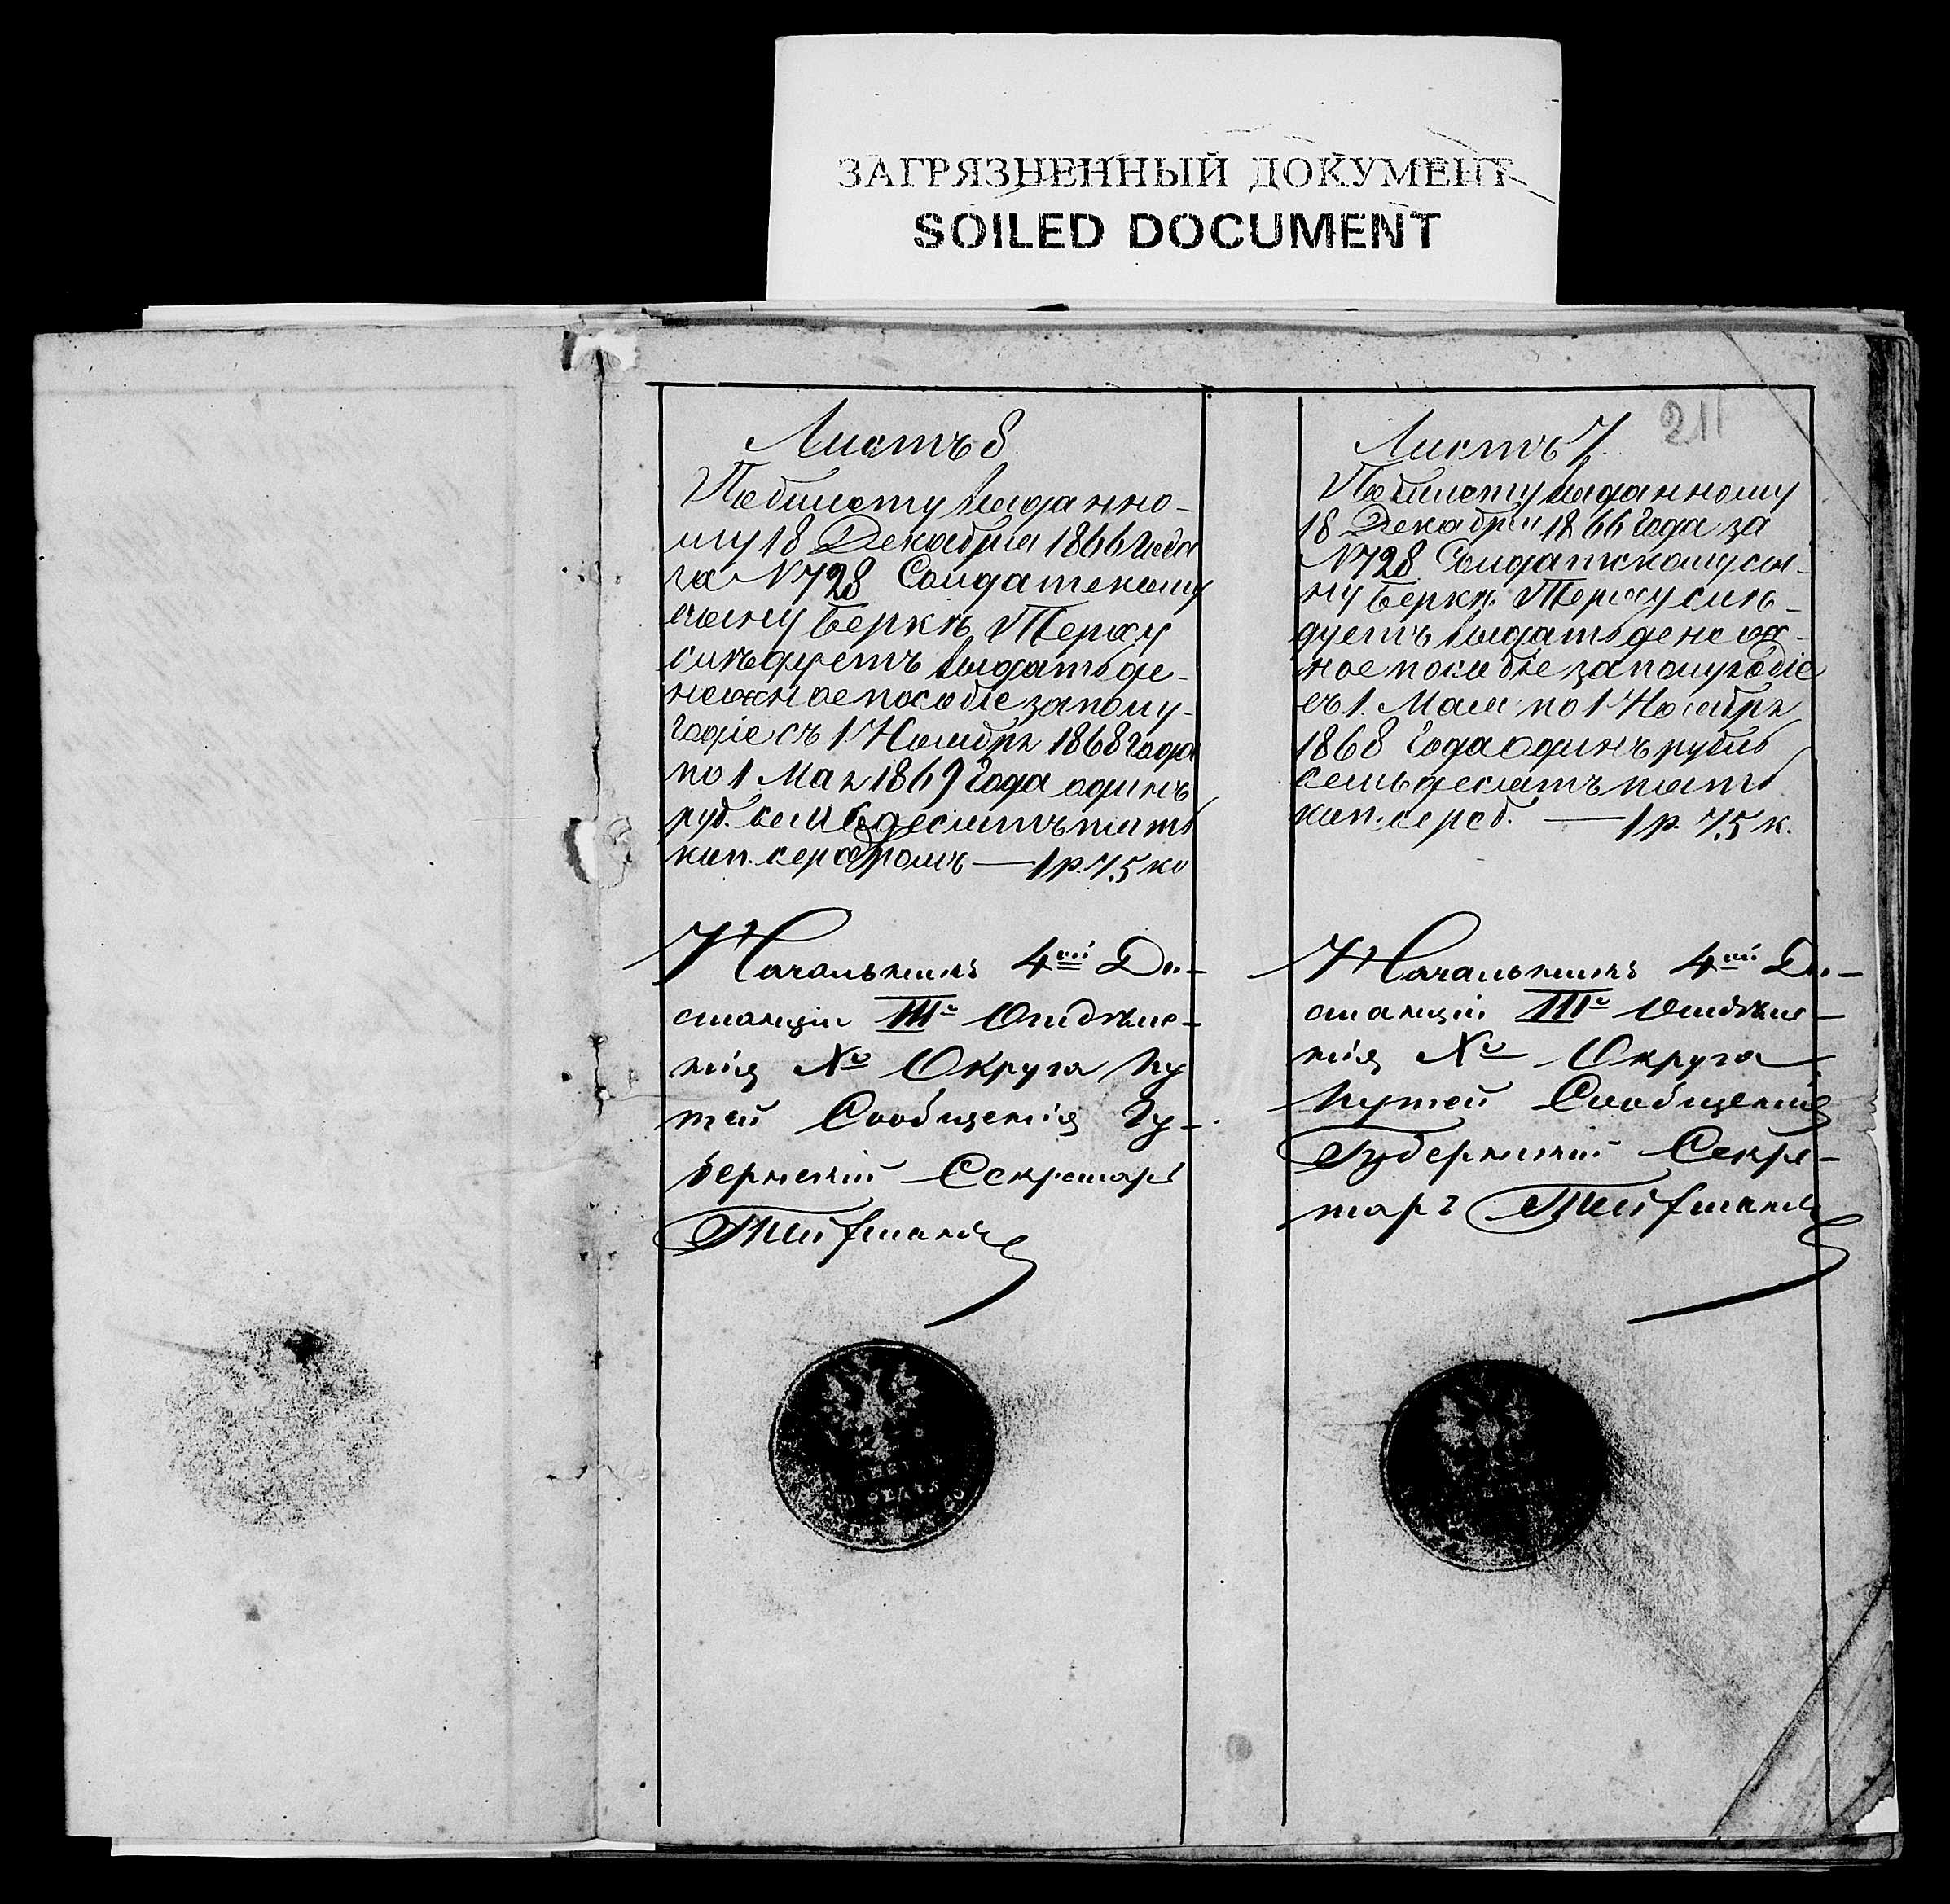 ЗАГРЯЗНЕННЫЙ ДОКУМЕНТ
SOILED DOCUMENT
211
Листъ 8
По билету выданно-
му 18 Декабря 1866 года
за N 728 Солдатскому
сыну Беркѣ
слѣдуетъ выдать де-
нежное пособіе за полу-
годіе съ 1 Ноября 1868 года
по 1 Мая 1869 года одинъ
руб. семьдесятъ пять
коп. серебромъ — 1 р. 75 ко
Начальникъ 4ой Ди-
станціи III Отдѣле-
нія Округа Пу
тей Сообщенія Гу-
бернскій Секретарь
Листъ 7.
По билету выданному
18 Декабря 1866 года за
N 728 Солдатскому сы-
ну Беркѣ слѣ-
дуетъ выдать денеж-
ное пособіе за полугодіе
съ 1. Мая по 1 Ноября
1868 года одинъ рубль
семьдесятъ пять
коп. сереб. — 1 р. 75 к.
Начальникъ 4ой Ди-
станціи III Отдѣле-
нія Округа
Путей Сообщенія
Губернскій Секре-
тарь